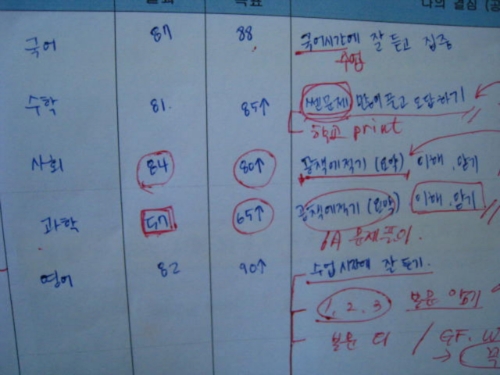 목표 나의 결심 (공
국어 87 88 국어시간에 잘 듣고 집중
수업
수학 81. 85↑ 쎈문제 많이 풀고 오답하기
학교 print
사회 84 80↑ 공책에적기 (요약) 이해. 암기
과학 57 65↑ 공책에적기 (요약) 이해. 암기
문제풀이.
영어 82 90↑ 수업시간에 잘 듣기.
1, 2, 3 본문 암기
본문 / GF.